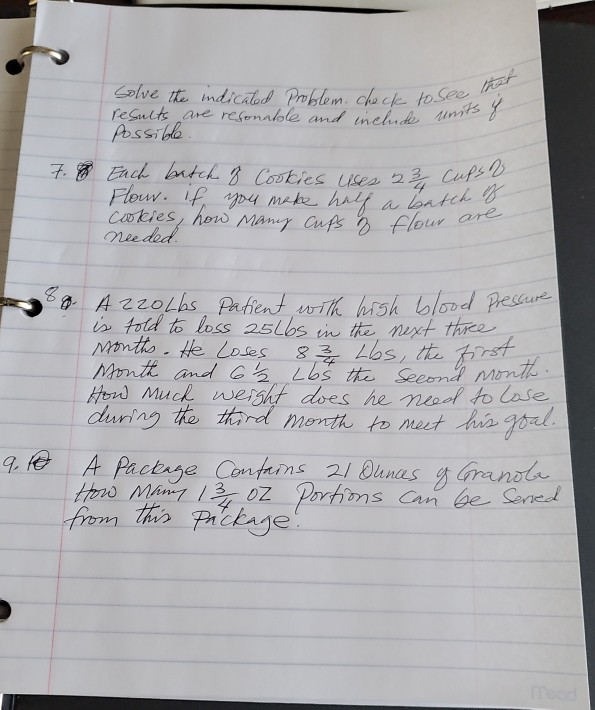 Solve the indicated Problem. check to see that
results are resonable and include units if
Possible.
7. Each batch of Cookies uses 2 3/4 cups of
Flour. if you make half a batch of
cookies, how many cups of flour are
needed.
8. A 220Lbs Patient with high blood Pressure
is told to loss 25Lbs in the next three
months. He Loses 8 3/4 Lbs, the first
Month and 6 1/2 Lbs the Second Month.
How Much weight does he need to Lose
during the third Month to meet his goal.
9. A Package Contains 21 Ounces of Granola
How Many 1 3/4 OZ Portions can be Served
from this Package.
Mead